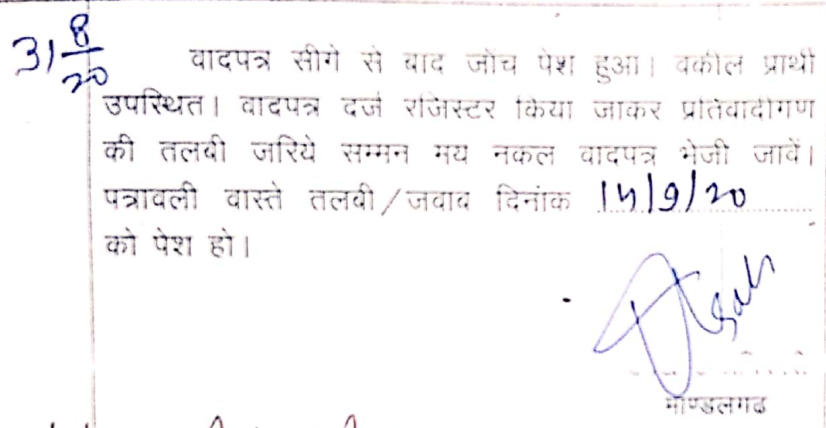 31 8/20
वादपत्र सीगे से बाद जाँच पेश हुआ। वकील प्रार्थी
उपस्थित। वादपत्र दर्ज रजिस्टर किया जाकर प्रतिवादीगण
की तलबी जरिये सम्मन मय नकल वादपत्र भेजी जावें।
पत्रावली वास्ते तलबी/जवाब दिनांक 14/9/20
को पेश हो।
माण्डलगढ